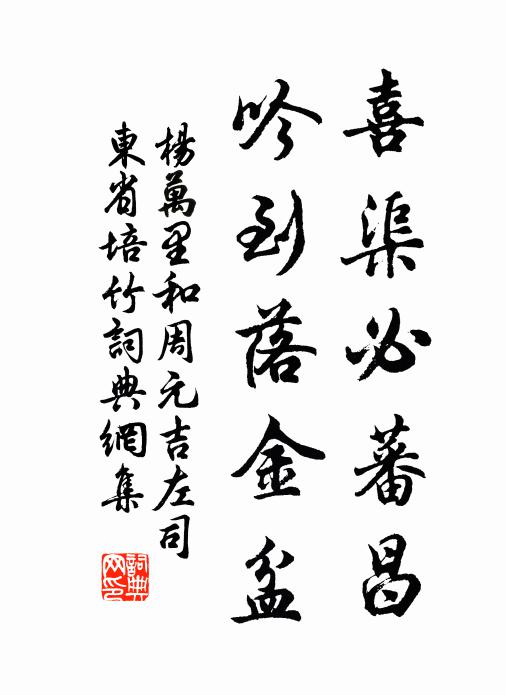 喜渠必蕃昌
吟到落金盆
楊萬里和周元吉左司
東省培竹詞典網集
詞典
网印